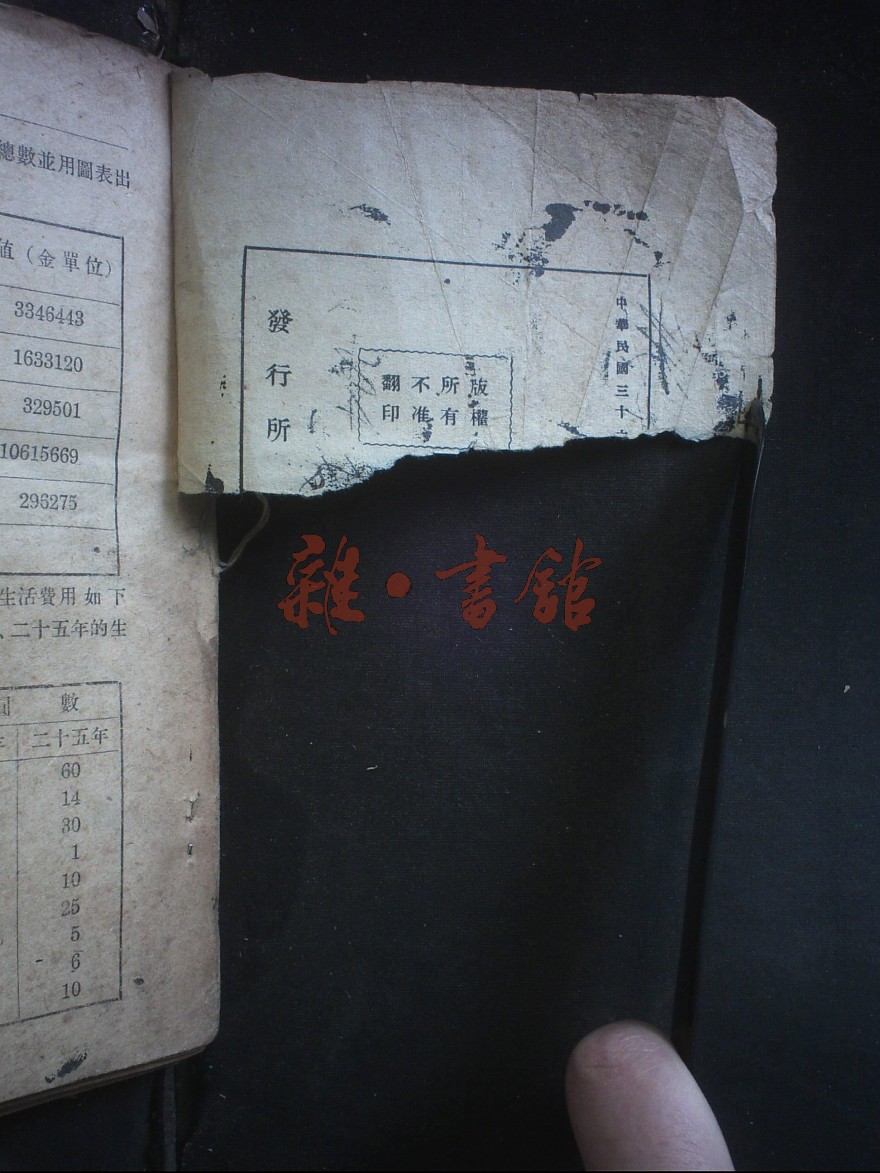 總數並用圖表出
值（金單位）
3346443
1633120
329501
10615669
296275
生活費用如下
、二十五年的生
數
二十五年
60
14
30
1
10
25
5
6
10
中華民國三十
版權
所有
不准
翻印
發行所
雜·書館